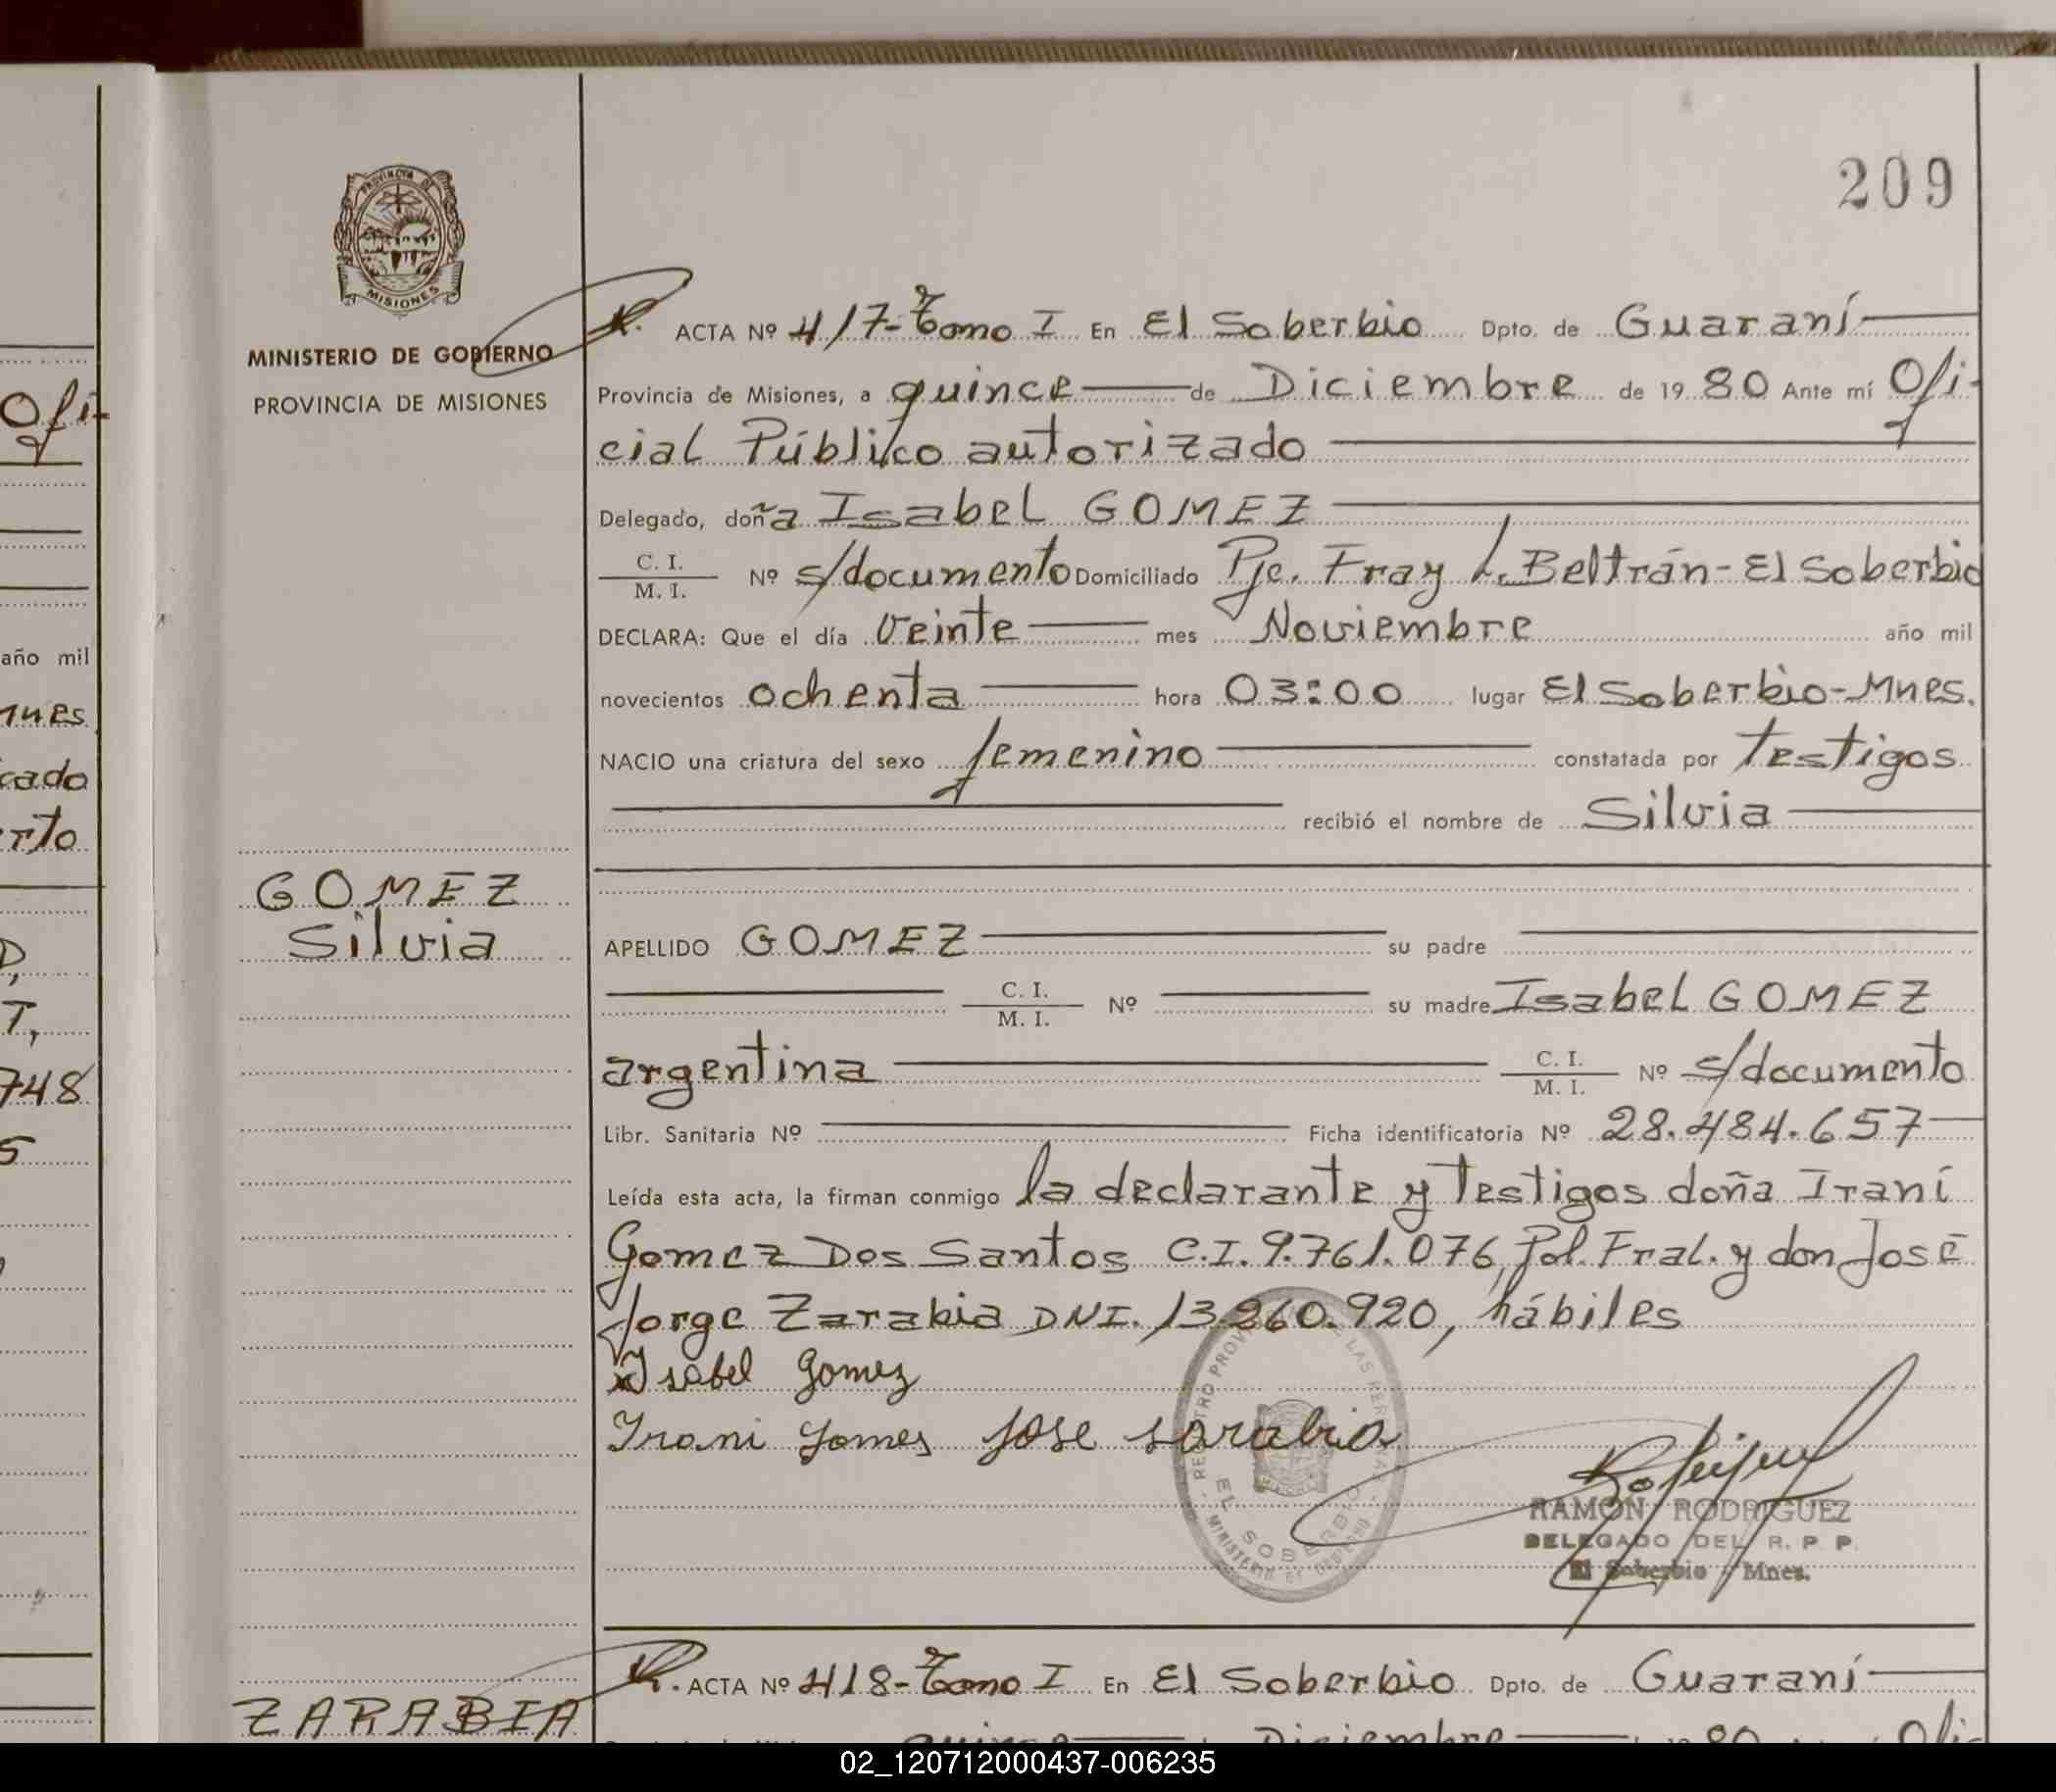 209
PROVINCIA DE
MISIONES
MINISTERIO DE GOBIERNO
PROVINCIA DE MISIONES
ACTA Nº 417-Tomo I En El Soberbio Dpto. de Guaraní
Provincia de Misiones, a quince de Diciembre de 1980 Ante mí Ofi-
cial Público autorizado
Delegado, doña Isabel GOMEZ
C. I.
M. I. Nº s/documento Domiciliado Pje. Fray L. Beltrán - El Soberbio
DECLARA: Que el día veinte mes Noviembre año mil
novecientos ochenta hora 03:00 lugar El Soberbio-Mnes.
NACIO una criatura del sexo femenino constatada por testigos
recibió el nombre de Silvia
GOMEZ
Silvia
APELLIDO GOMEZ su padre
C. I.
M. I. Nº su madre Isabel GOMEZ
argentina C. I.
M. I. Nº s/documento
Libr. Sanitaria Nº Ficha identificatoria Nº 28.484.657
Leída esta acta, la firman conmigo la declarante y testigos doña Iraní
Gomez Dos Santos C.I. 9.761.076, Pol. Fral. y don José
Jorge Zarabia DNI. 13.260.920, hábiles
Isabel Gomez
Irani Gomes Jose sarabia
EL SOBERBIO
RAMON RODRIGUEZ
DELEGADO DEL R. P. P.
El Soberbio - Mnes.
ACTA Nº 418-Tomo I En El Soberbio Dpto. de Guaraní
ZARABIA
quince Diciembre 80 Ofi-
Ofi-
año mil
Mnes
cado
rto
D,
T,
748
5
02_120712000437-006235